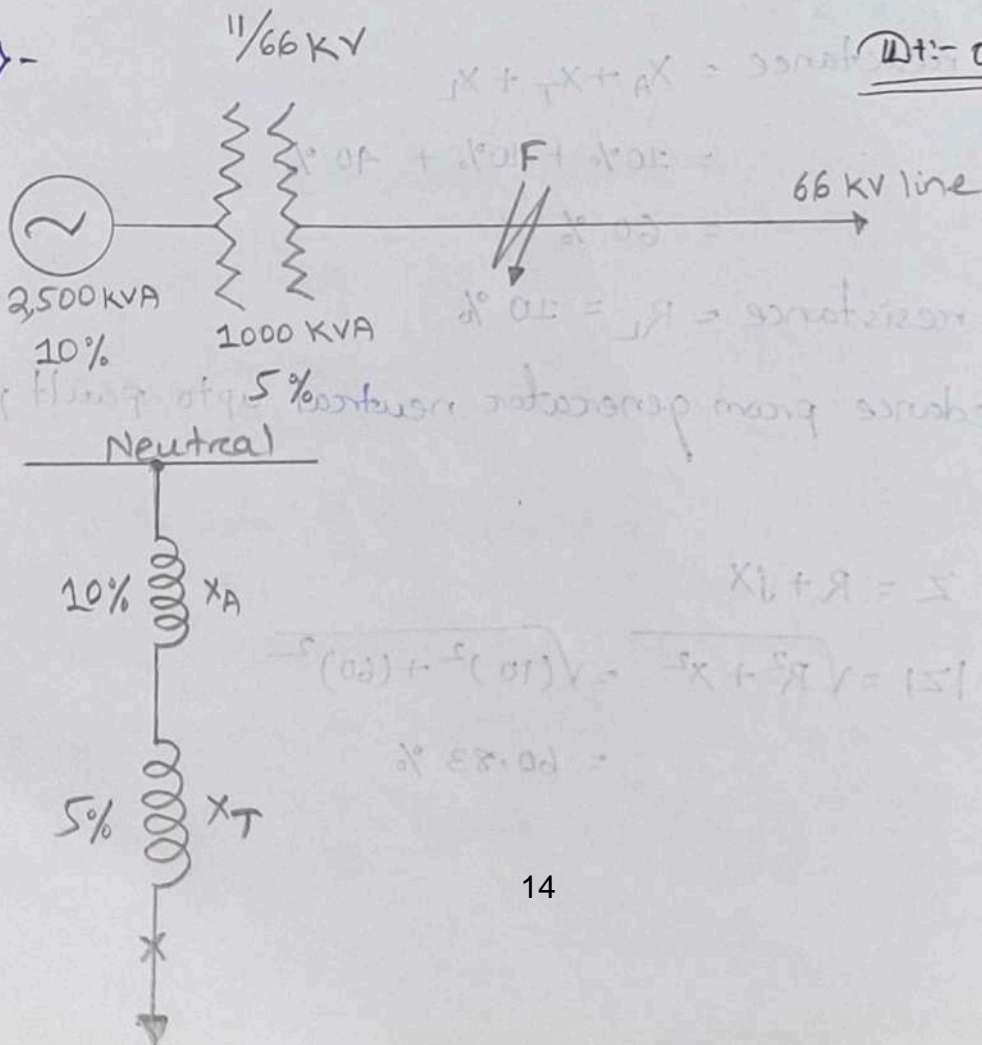 11/66 KV
Dt:-
F
66 KV line
2,500 KVA
10%
1000 KVA
5%
Neutral
10% XA
5% XT
14